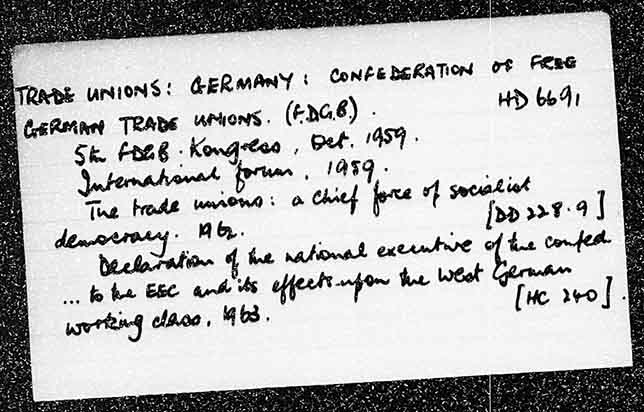 TRADE UNIONS: GERMANY: CONFEDERATION OF FREE
GERMAN TRADE UNIONS. (F.D.G.B.). HD 6691
5th FDGB. Kongress, Oct. 1959.
International forum, 1959.
The trade unions: a chief force of socialist
democracy. 1962. [DD 228.9]
Declaration of the national executive of the confed.
... to the EEC and its effects upon the West German
working class, 1963. [HC 240].